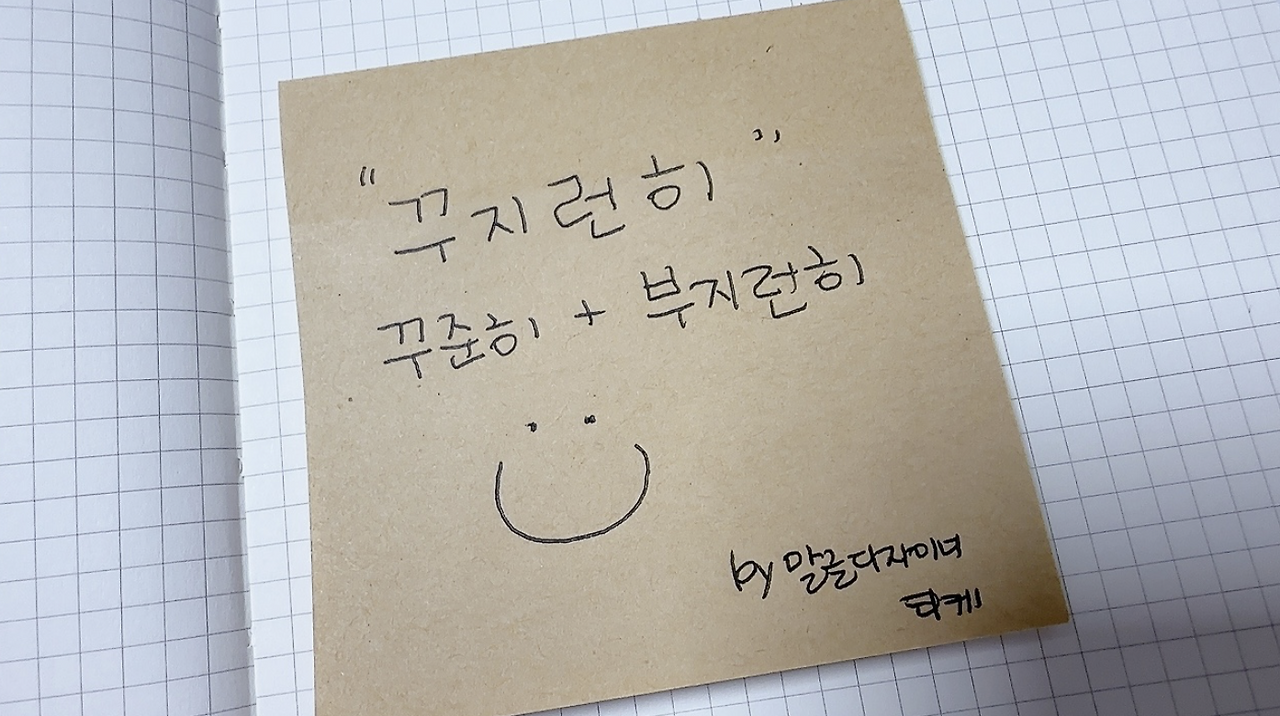 "꾸지런히"
꾸준히 + 부지런히
by 말글디자이너
타케